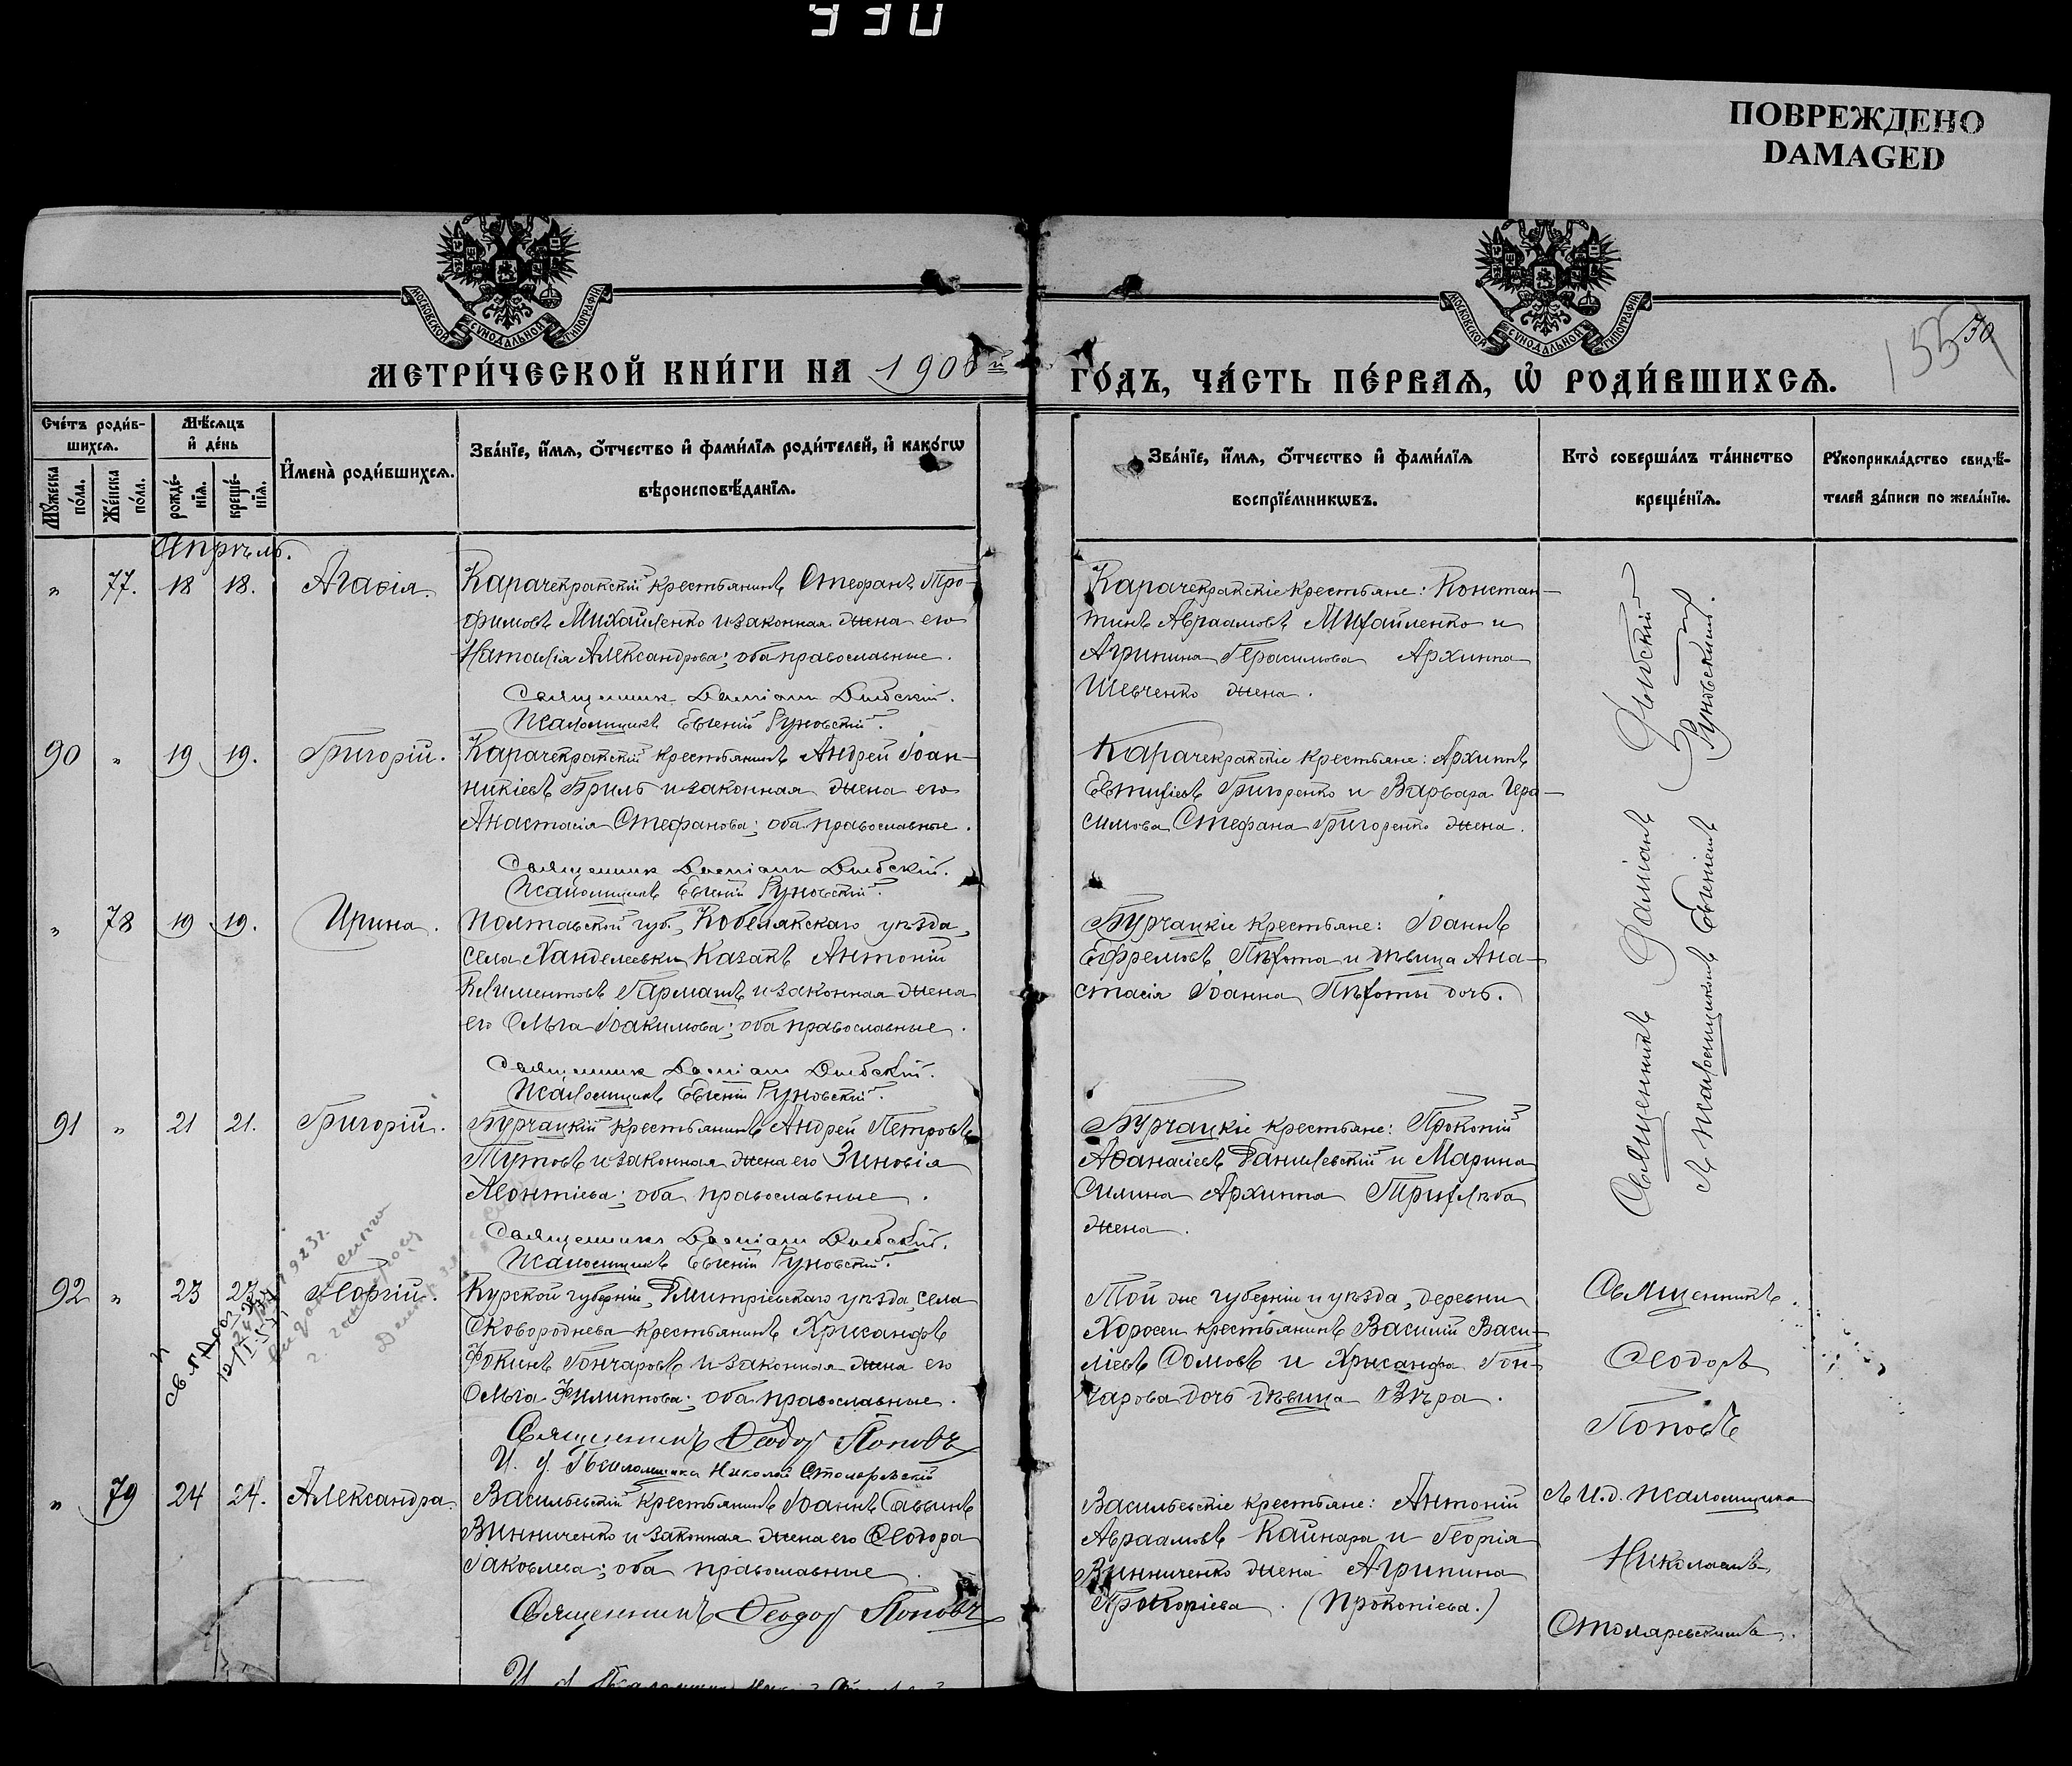 930
ПОВРЕЖДЕНО
DAMAGED
МОСКОВСКОЙ СУНОДАЛЬНОЙ ТИПОГРАФІИ
МОСКОВСКОЙ СУНОДАЛЬНОЙ ТИПОГРАФІИ
МЕТРИ́ЧЕСКОЙ КНИ́ГИ НА 1908й
ГО́ДЪ, ЧА́СТЬ ПЕ́РВАѦ, Ѡ҆ РОДИ́ВШИХСѦ.
Сче́тъ роди́в-
шихсѧ.
Мꙋ́жеска по́ла.
Же́нска по́ла.
Мѣ́сѧцъ
и҆ де́нь
рожде́-
нїѧ.
креще́-
нїѧ.
И҆мена̀ роди́вшихсѧ.
Зва́нїе, и҆́мѧ, ѻ҆́тчество и҆ фами́лїѧ роди́телей, и҆ како́гѡ
вѣроисповѣ́данїѧ.
Зва́нїе, и҆́мѧ, ѻ҆́тчество и҆ фами́лїѧ
воспрїе́мникѡвъ.
Кто̀ соверша́лъ та́инство
креще́нїѧ.
Рꙋкоприкла́дство свидѣ́-
телей за́писи по жела́нїю.
Апрѣль.
" 77. 18 18. Агаѳія.
Карачекракскій крестьянинъ Стефанъ Тро-
фимовъ Михайленко и законная жена его
Наталія Александрова; оба православные.
Священник Дамиан Дибский.
Псаломщикъ Евгеній Руновскій.
Карачекракскіе крестьяне: Констан-
тинъ Авраамовъ Михайленко и
Агрипина Герасимова Архипа
Шевченко жена.
90 " 19 19. Григорій.
Карачекракскій крестьянинъ Андрей Іоан-
никіевъ Бриль и законная жена его
Анастасія Стефанова; оба православные.
Священник Дамиан Дибский.
Псаломщикъ Евгеній Руновскій.
Карачекракскіе крестьяне: Архипъ
Евтихіевъ Григоренко и Варвара Гера-
симова Стефана Григоренко жена.
" 78 19 19. Ирина.
Полтавской губ., Кобелякскаго уѣзда,
села Ханделеевки Казакъ Антоній
Климентовъ Гармашъ и законная жена
его Ольга Іоакимова; оба православные.
Священник Дамиан Дибский.
Псаломщикъ Евгеній Руновскій.
Бурчацкіе крестьяне: Іоаннъ
Ефремовъ Пѣхота и дѣвица Ана-
стасія Іоанна Пѣхоты дочь.
91 " 21 21. Григорій.
Бурчацкій крестьянинъ Андрей Петровъ
Тутовъ и законная жена его Зиновія
Леонтіева; оба православные.
Священникъ Дамиан Дибский.
Псаломщикъ Евгеній Руновскій.
Бурчацкіе крестьяне: Прокопій
Аѳанасіевъ Данилевскій и Марина
Силина Архипа Трихлѣба
жена.
Священникъ Даміанъ Дибскій
съ псаломщикомъ Евгеніемъ Руновскимъ.
92 " 23 23. Георгій.
Курской губерніи, Дмитріевскаго уѣзда, села
Сковороднева крестьянинъ Хрисанфъ
Фокинъ Гончаровъ и законная жена его
Ольга Филиппова; оба православные.
Священникъ Ѳеодор Поповъ
И. д. Псаломщика Николай Столяревскій
Той же губерніи и уѣзда, деревни
крестьянинъ Василій Васи-
ліевъ Сомовъ и Хрисанфа Гон-
чарова дочь дѣвица Вѣра.
Священникъ
Ѳеодоръ
Поповъ
" 79 24 24. Александра.
Васильевскій крестьянинъ Іоаннъ Саввинъ
Винниченко и законная жена его Ѳеодора
Іаковлева; оба православные.
Священникъ Ѳеодор Поповъ
Васильевскіе крестьяне: Антоній
Авраамовъ Кайнара и Георгія
Винниченко жена Агрипина
(Прокопіева.)
съ И. д. псаломщика
Николаемъ
Столяревскимъ.